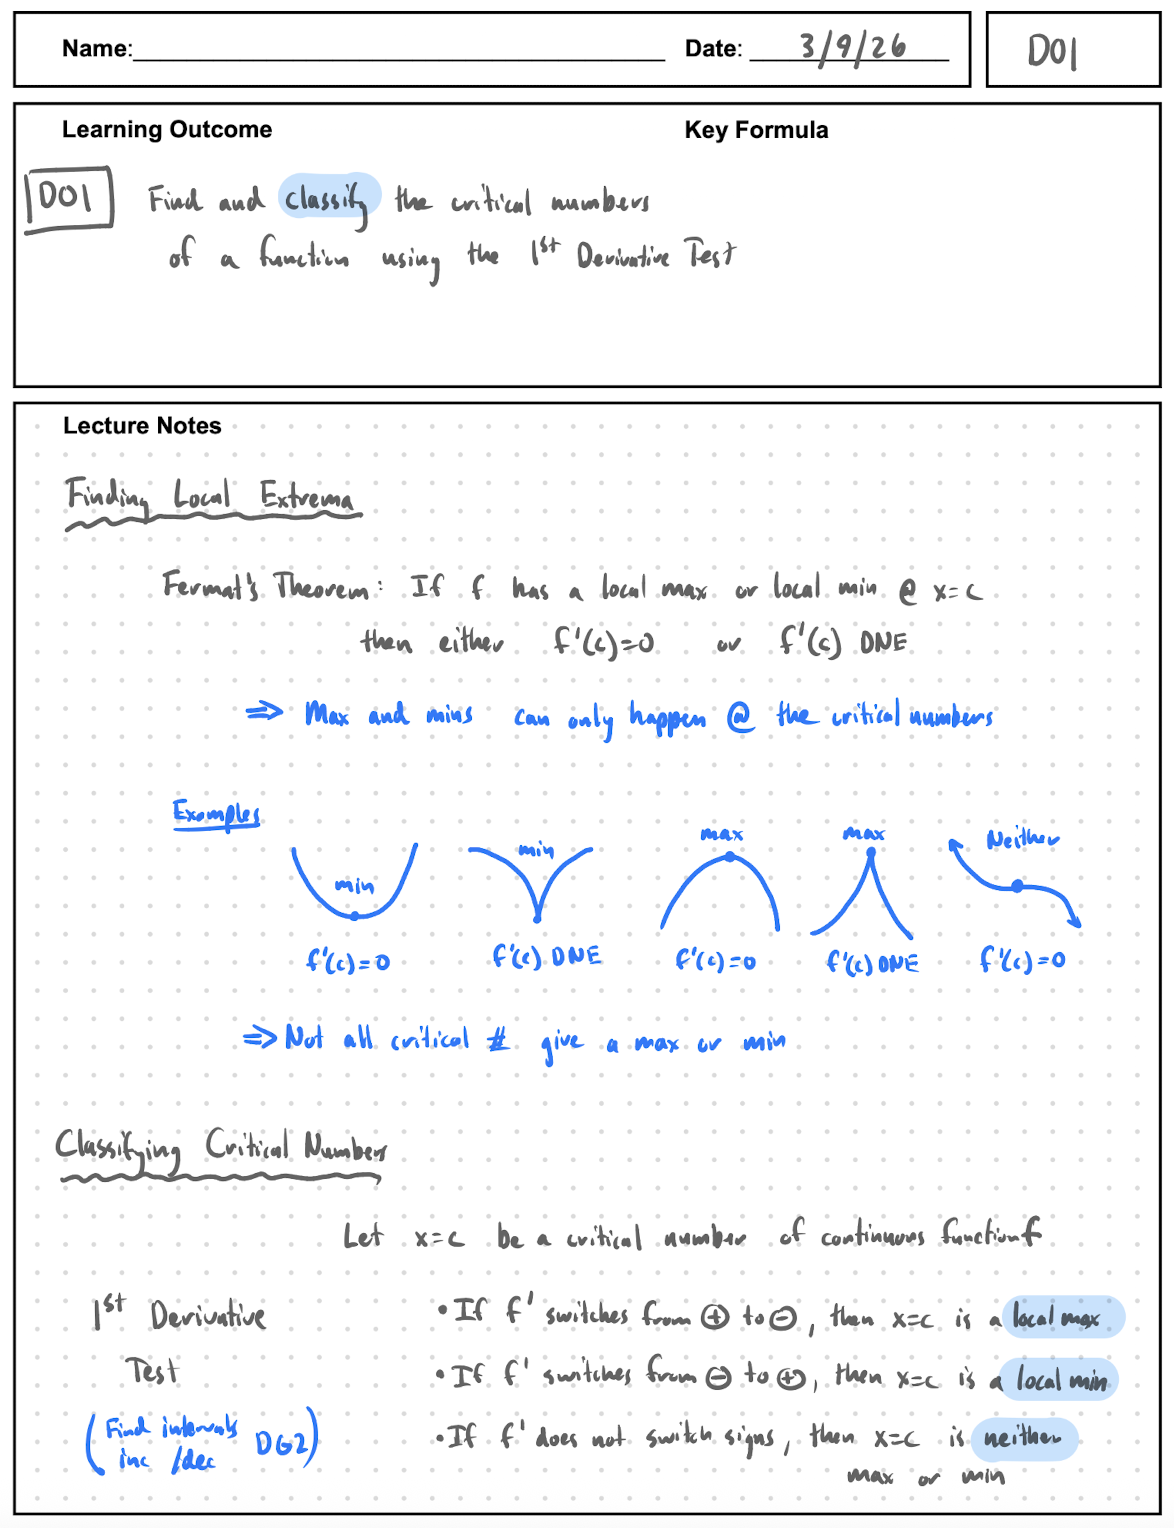 Name: Date: 3/9/26 DO1
Learning Outcome Key Formula
DO1 Find and classify the critical numbers
of a function using the 1st Derivative Test
Lecture Notes
Finding Local Extrema
Fermat's Theorem: If f has a local max or local min @ x=c
then either f'(c)=0 or f'(c) DNE
⇒ Max and mins can only happen @ the critical numbers
Examples
min min max max Neither
f'(c)=0 f'(c) DNE f'(c)=0 f'(c) DNE f'(c)=0
⇒ Not all critical # give a max or min
Classifying Critical Numbers
Let x=c be a critical number of continuous function f
1st Derivative
Test
(Find intervals
inc/dec DG2)
• If f' switches from ⊕ to ⊖, then x=c is a local max
• If f' switches from ⊖ to ⊕, then x=c is a local min
• If f' does not switch signs, then x=c is neither
max or min